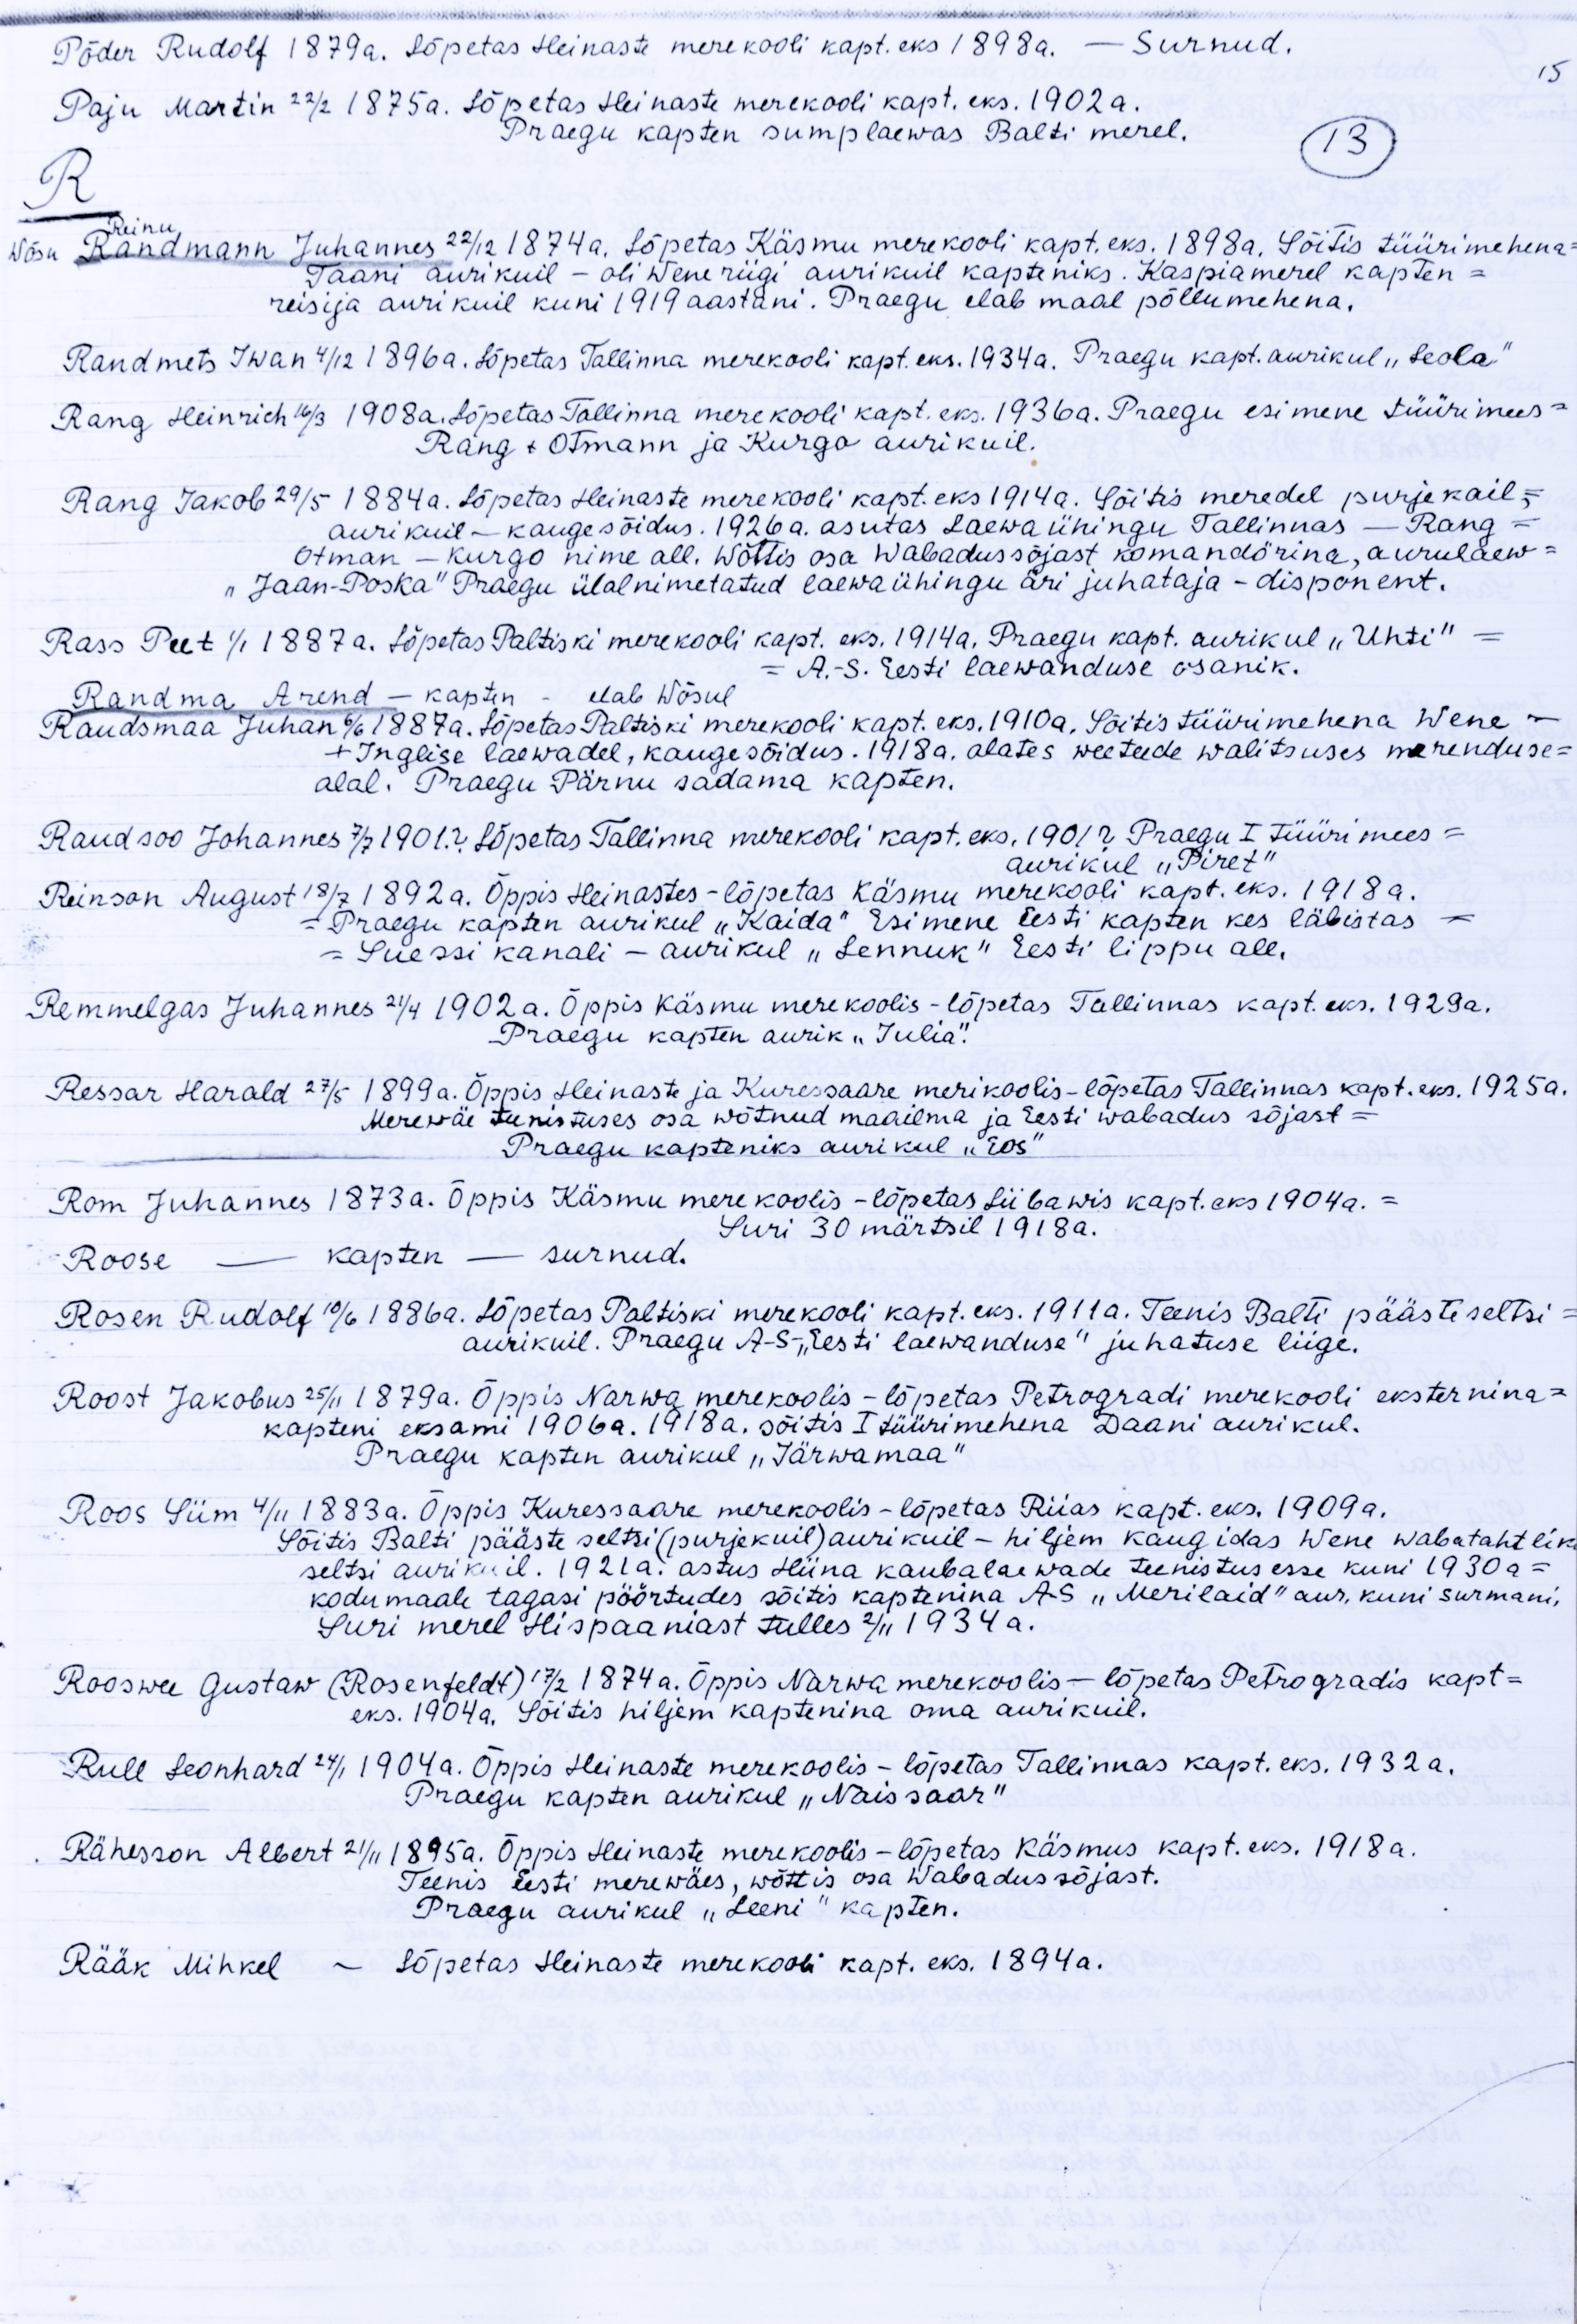 Põder Rudolf 1879a. Lõpetas Heinaste merekooli kapt. eks 1898a. — Surnud.
15
Paju Martin 22/2 1875a. Lõpetas Heinaste merekooli kapt. eks. 1902a.
Praegu kapten sumplaewas Balti merel.
13
R
Reinu
Wõsu Randmann Juhannes 22/12 1874a. Lõpetas Käsmu merekooli kapt. eks. 1898a. Sõitis tüürimehena=
Taani aurikuil – oli Wene riigi aurikuil kapteniks. Kaspiamerel kapten =
reisija aurikuil kuni 1919 aastani. Praegu elab maal põllumehena.
Randmets Iwan 4/12 1896a. Lõpetas Tallinna merekooli kapt. eks. 1934a. Praegu kapt. aurikul „Leola"
Rang Heinrich 16/3 1908a. Lõpetas Tallinna merekooli kapt. eks. 1936a. Praegu esimene tüürimees =
Rang + Otmann ja Kurgo aurikuil.
Rang Jakob 29/5 1884a. Lõpetas Heinaste merekooli kapt. eks 1914a. Sõitis meredel purjekail =
aurikuil – kaugesõidus. 1926a. asutas Laewaühingu Tallinnas — Rang =
Otman – Kurgo nime all. Wõttis osa Wabadussõjast komandörina, aurulaew =
„Jaan-Poska" Praegu ülalnimetatud laewaühingu äri juhataja – disponent.
Rass Peet 1/1 1887a. Lõpetas Paltiski merekooli kapt. eks. 1914a. Praegu kapt. aurikul „Uhti" =
= A.-S. Eesti laewanduse osanik.
Randma Arend – kapten - elab Wõsul
Raudsmaa Juhan 6/6 1887a. Lõpetas Paltiski merekooli kapt. eks. 1910a. Sõitis tüürimehena Wene –
+ Inglise laewadel, kaugesõidus. 1918a. alates weeteede walitsuses merenduse=
alal. Praegu Pärnu sadama kapten.
Raudsoo Johannes 7/7 1901.? Lõpetas Tallinna merekooli kapt. eks. 1901? Praegu I tüürimees =
aurikul „Piret"
Reinson August 18/7 1892a. Õppis Heinastes – lõpetas Käsmu merekooli kapt. eks. 1918a.
= Praegu kapten aurikul „Kaida" Esimene Eesti kapten kes läbistas =
= Suessi kanali – aurikul „Lennuk" Eesti lippu all.
Remmelgas Juhannes 21/4 1902a. Õppis Käsmu merekoolis – lõpetas Tallinnas kapt. eks. 1929a.
Praegu kapten aurik „Julia".
Ressar Harald 27/5 1899a. Õppis Heinaste ja Kuressaare merikoolis – lõpetas Tallinnas kapt. eks. 1925a.
Merewäe tunistuses osa wõtnud maailma ja Eesti wabadus sõjast =
Praegu kapteniks aurikul „Eos"
Rom Juhannes 1873a. Õppis Käsmu merekoolis – lõpetas Liibawis kapt. eks 1904a. =
Suri 30 märtsil 1918a.
Roose — kapten — surnud.
Rosen Rudolf 10/6 1886a. Lõpetas Paltiski merekooli kapt. eks. 1911a. Teenis Balti päästeseltsi =
aurikuil. Praegu A-S-„Eesti laewanduse" juhatuse liige.
Roost Jakobus 25/11 1879a. Õppis Narwa merekoolis – lõpetas Petrogradi merekooli eksternina =
kapteni eksami 1906a. 1918a. sõitis I tüürimehena Daani aurikul.
Praegu kapten aurikul „Järwamaa"
Roos Siim 4/11 1883a. Õppis Kuressaare merekoolis – lõpetas Riias kapt. eks. 1909a.
Sõitis Balti pääste seltsi (purjekuil) aurikuil – hiljem Kaug idas Wene wabatahtlik
seltsi aurikuil. 1921a. astus Hiina kaubalaewade teenistusesse kuni 1930a =
kodumaale tagasi pöörtudes sõitis kaptenina A-S „Merilaid" aur. kuni surmani.
Suri merel Hispaaniast tulles 2/11 1934a.
Rooswee Gustaw (Rosenfeldt) 17/2 1874a. Õppis Narwa merekoolis – lõpetas Petrogradis kapt =
eks. 1904a. Sõitis hiljem kaptenina oma aurikuil.
Rull Leonhard 24/1 1904a. Õppis Heinaste merekoolis – lõpetas Tallinnas kapt. eks. 1932a.
Praegu kapten aurikul „Naissaar"
Rähesson Albert 21/11 1895a. Õppis Heinaste merekoolis – lõpetas Käsmus kapt. eks. 1918a.
Teenis Eesti merewäes, wõttis osa Wabadussõjast.
Praegu aurikul „Leeni" kapten.
Rääk Mihkel ~ Lõpetas Heinaste merekooli kapt. eks. 1894a.